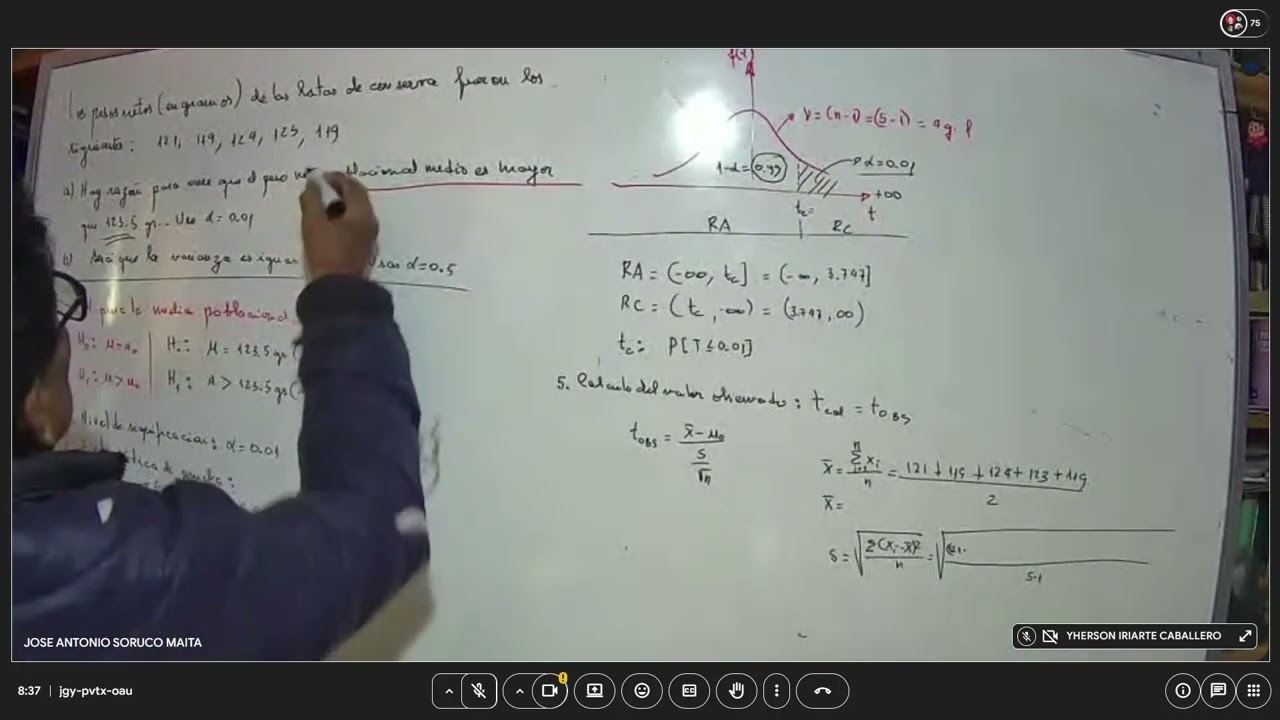 75
Los pesos netos (en gramos) de las latas de conserva fueron los
siguientes: 121, 119, 124, 123, 119
a) Hay razón para creer que el peso poblacional medio es mayor
que 123.5 gr.. Use α = 0.01
b) que la varianza es igual α = 0.5
la media poblacional
H₀: μ = μ₀ H₀: μ = 123.5 gr
H₁: μ > μ₀ H₁: μ > 123.5 gr
Nivel de significacion: α = 0.01
de prueba:
f(t)
γ = (n-1) = (5-1) = 4 g. l
1-α = 0.99
α = 0.01
+∞
tc
t
RA RC
RA = (-∞, tc] = (-∞, 3.747]
RC = (tc, -∞) = (3.747, ∞)
tc: P[T ≤ 0.01]
5. Calculo del valor observado: tcal = tOBS
tOBS = x̄ - μ₀ / s / √n
x̄ = Σ xi / n = 121 + 119 + 124 + 123 + 119 / 2
x̄ =
S = √ Σ(xi - x̄)² / n = √ (121- / 5-1
JOSE ANTONIO SORUCO MAITA
YHERSON IRIARTE CABALLERO
8:37 | jgy-pvtx-oau